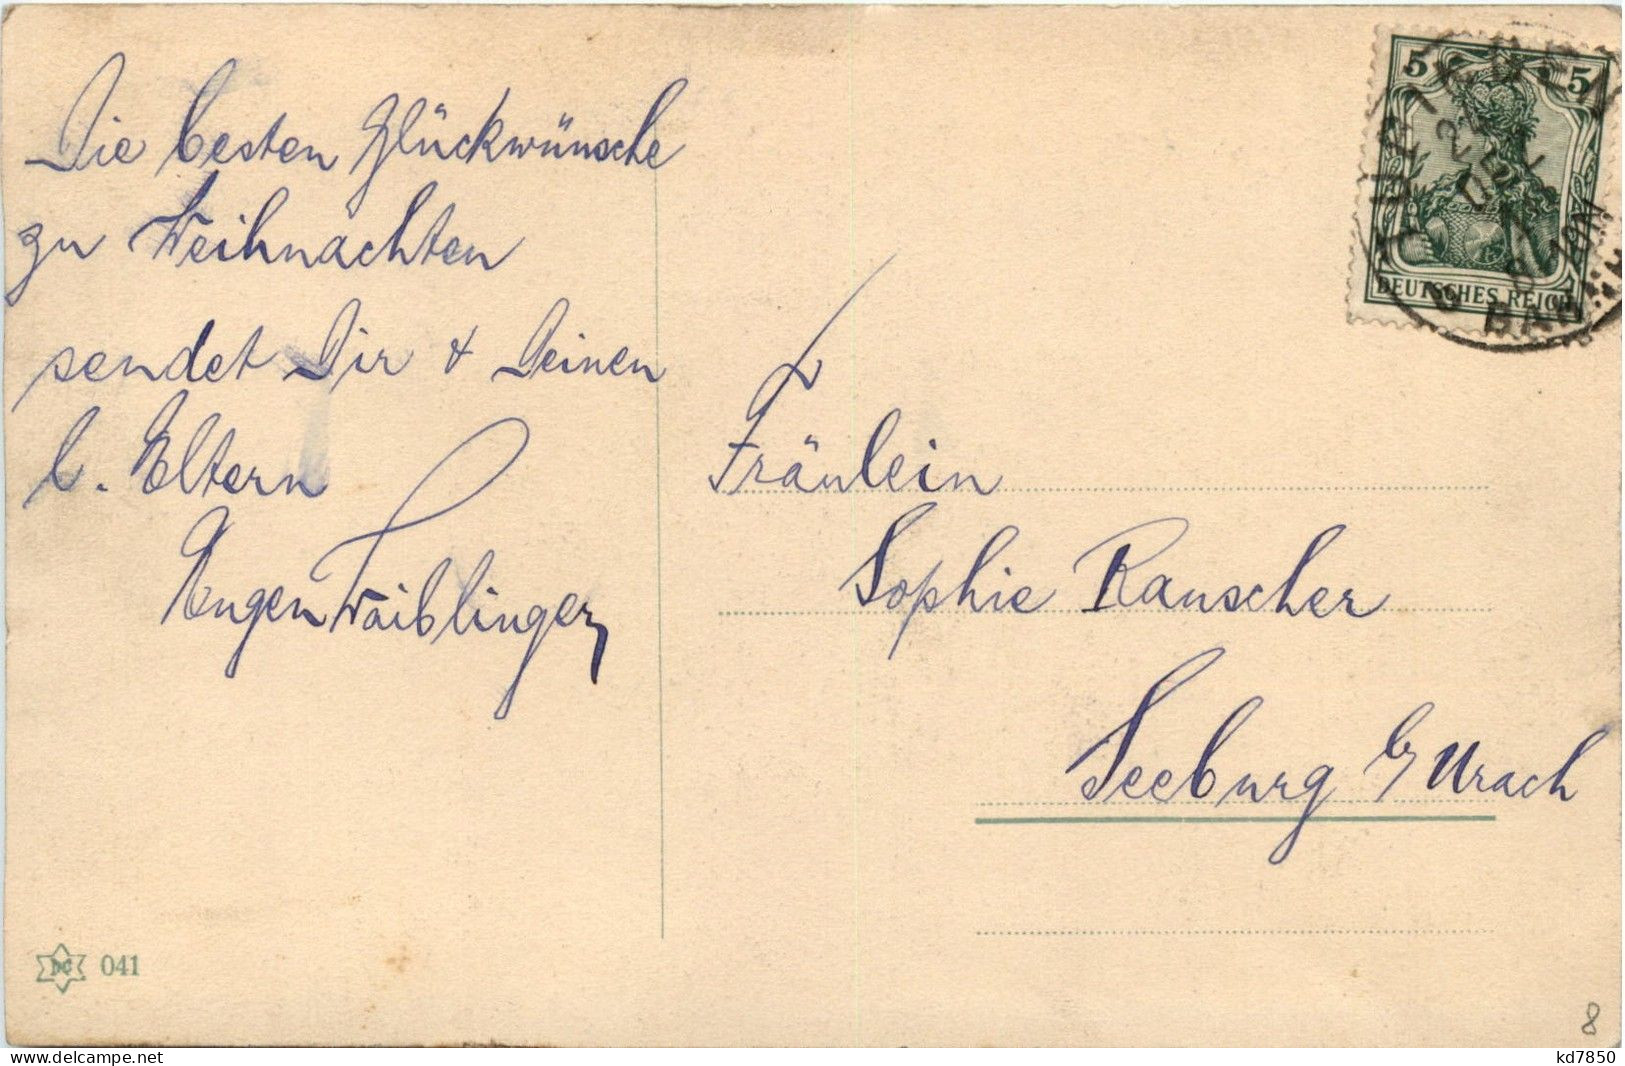 Die besten Glückwünsche
zu Weihnachten
sendet Dir & Deinen
l. Eltern
Eugen Waiblinger
Fräulein
Sophie Rauscher
Seeburg b/ Urach
5 5
DEUTSCHES REICH
DEZ
041
8
kd7850